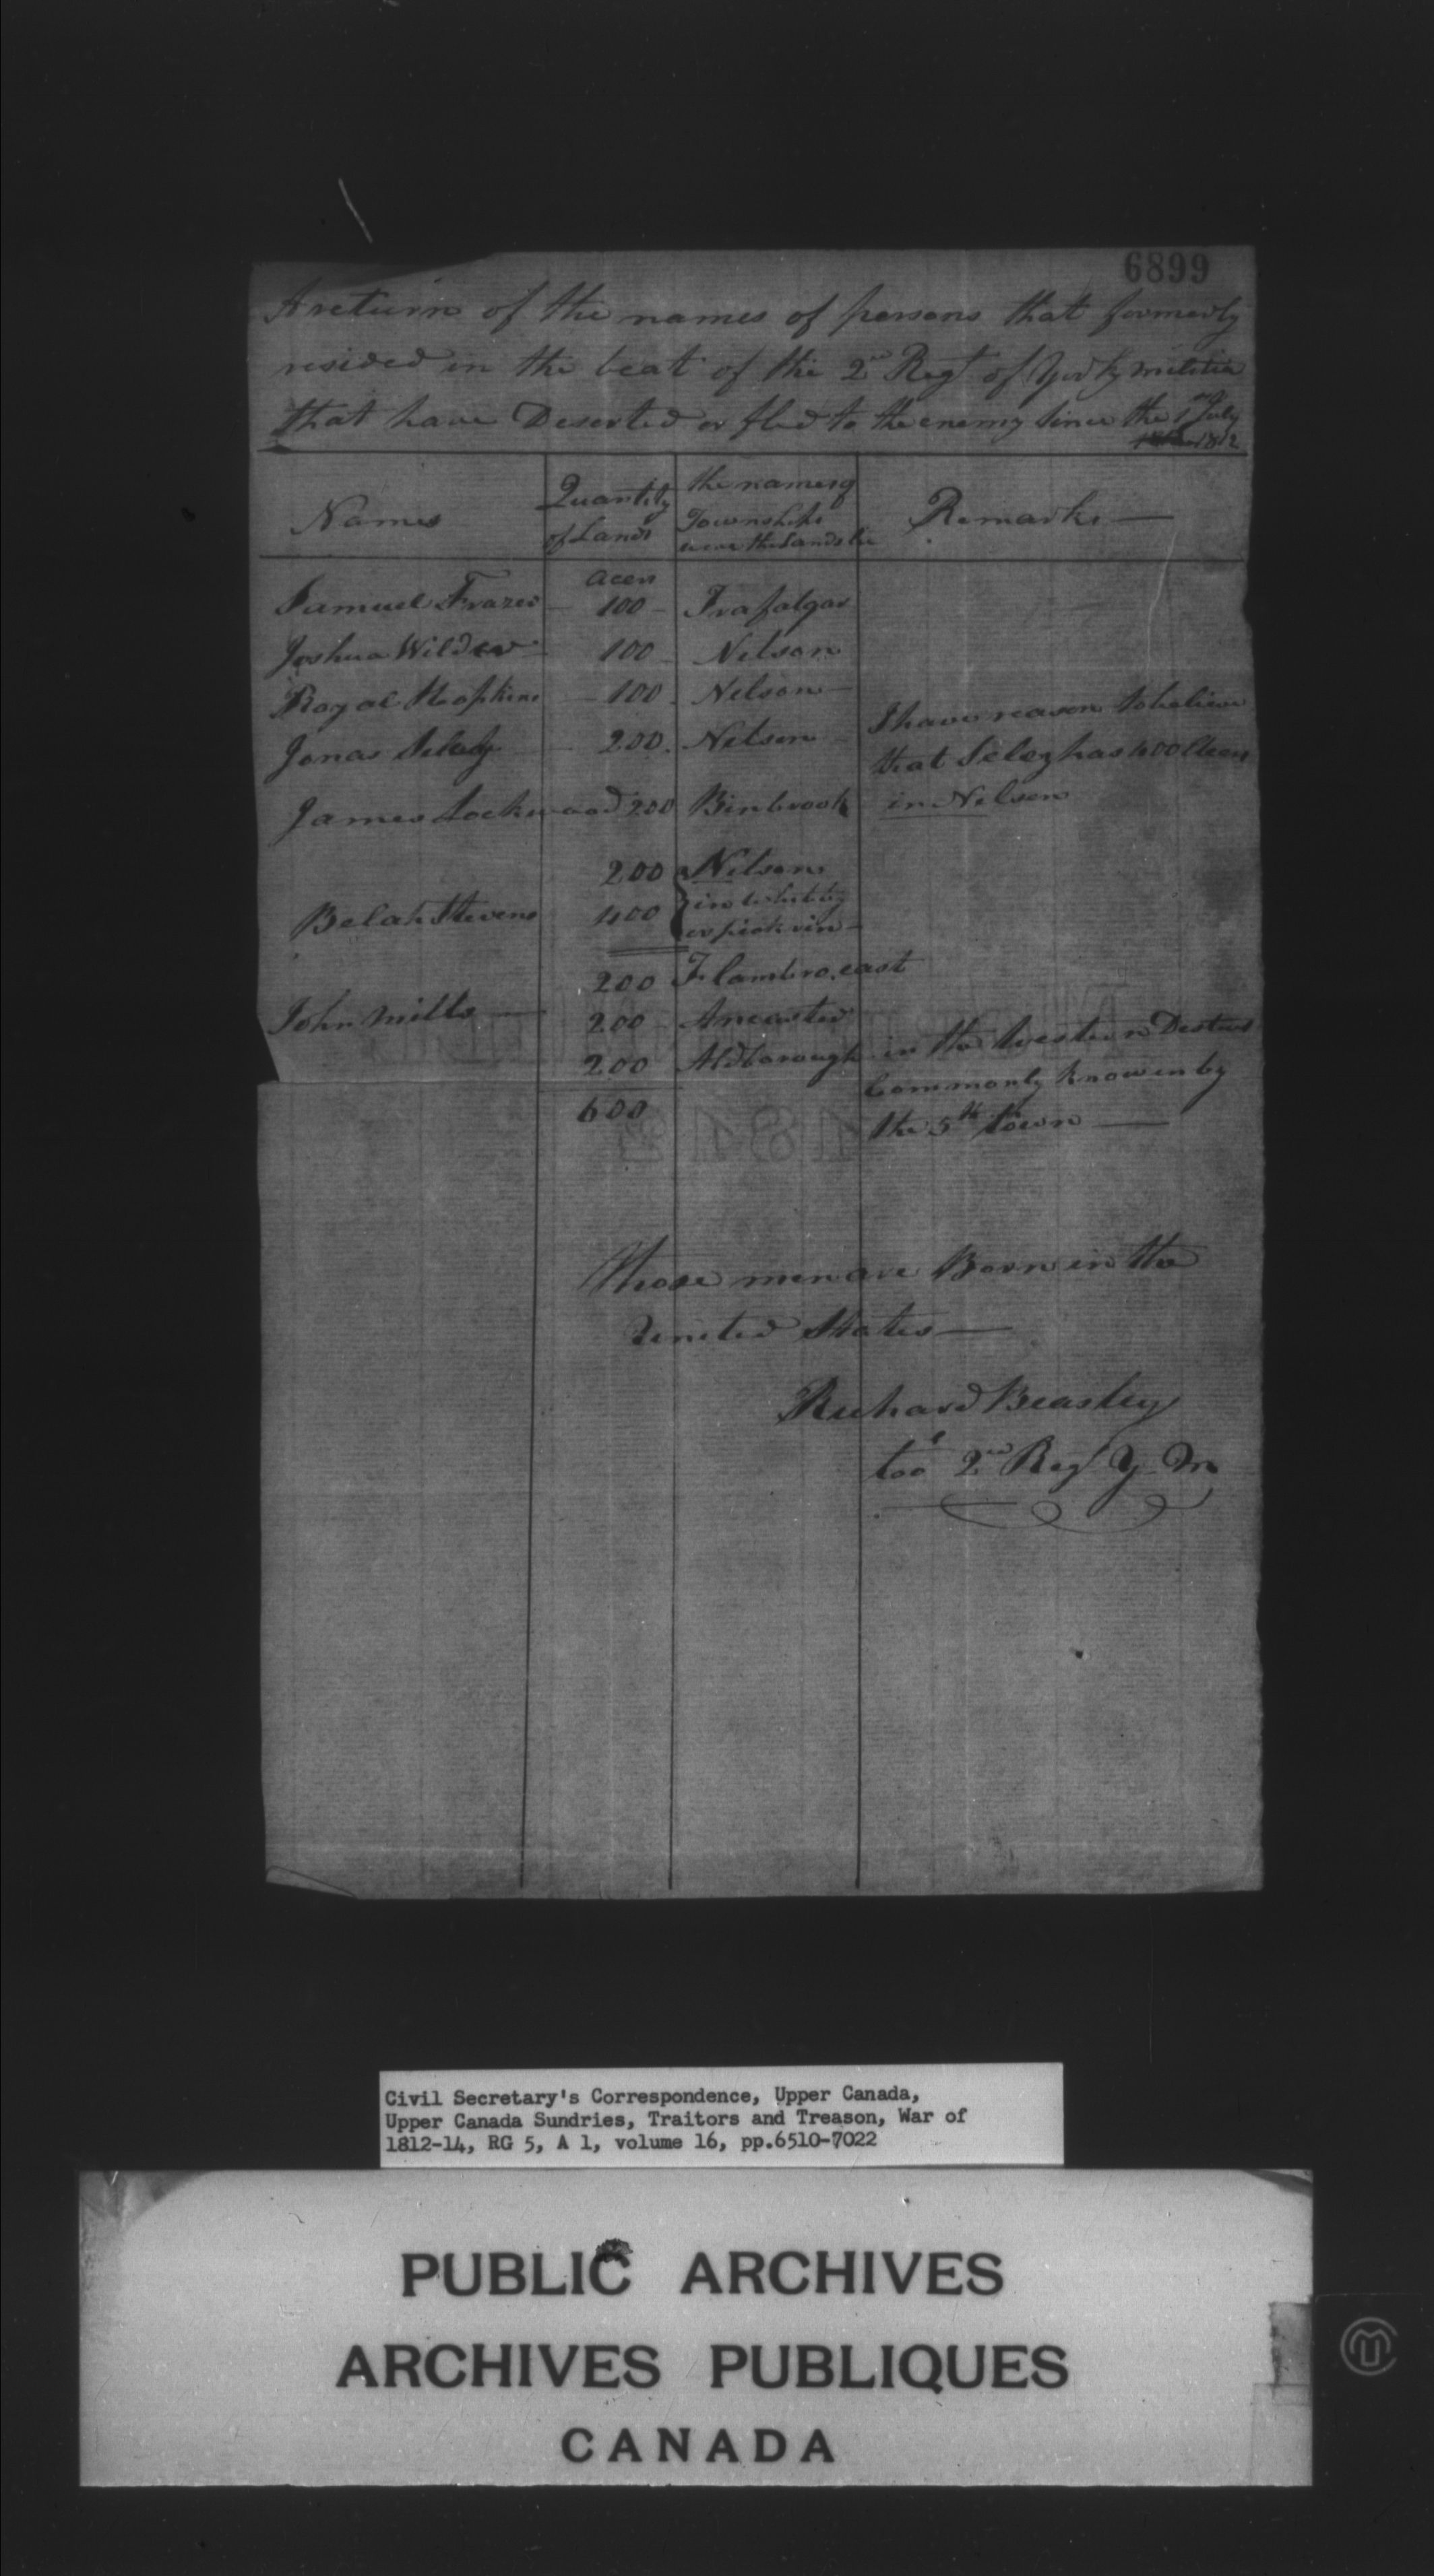 6899
A return of the names of persons that formerly
resided in the beat of the 2nd Regt of York militia
that have Deserted or fled to the enemy since the 1st July
1812
Names
Quantity
of Land
the names of
Townships
were the Lands lie
Remarks
acers
Samuel Frazer 100 Trafalgar
Joshua Wilder 100 Nelson
Royal Hopkins 100 Nelson
Jonas Seley 200 Nelson
I have reason to believe
that Seley has 400 Acers
in Nelson
James Lockwood 200 Binbrook
200 Nelson
Belah Stevens 400 in Whitby
or pickrin
200 Flambro east
John Mills 200 Ancaster
200 Aldborough in the Western District
Commonly knowen by
the 5th town
600
Those men are Born in the
United States
Richard Beasley
2nd Regt Y M
Civil Secretary's Correspondence, Upper Canada,
Upper Canada Sundries, Traitors and Treason, War of
1812-14, RG 5, A 1, volume 16, pp.6510-7022
PUBLIC ARCHIVES
ARCHIVES PUBLIQUES
CANADA